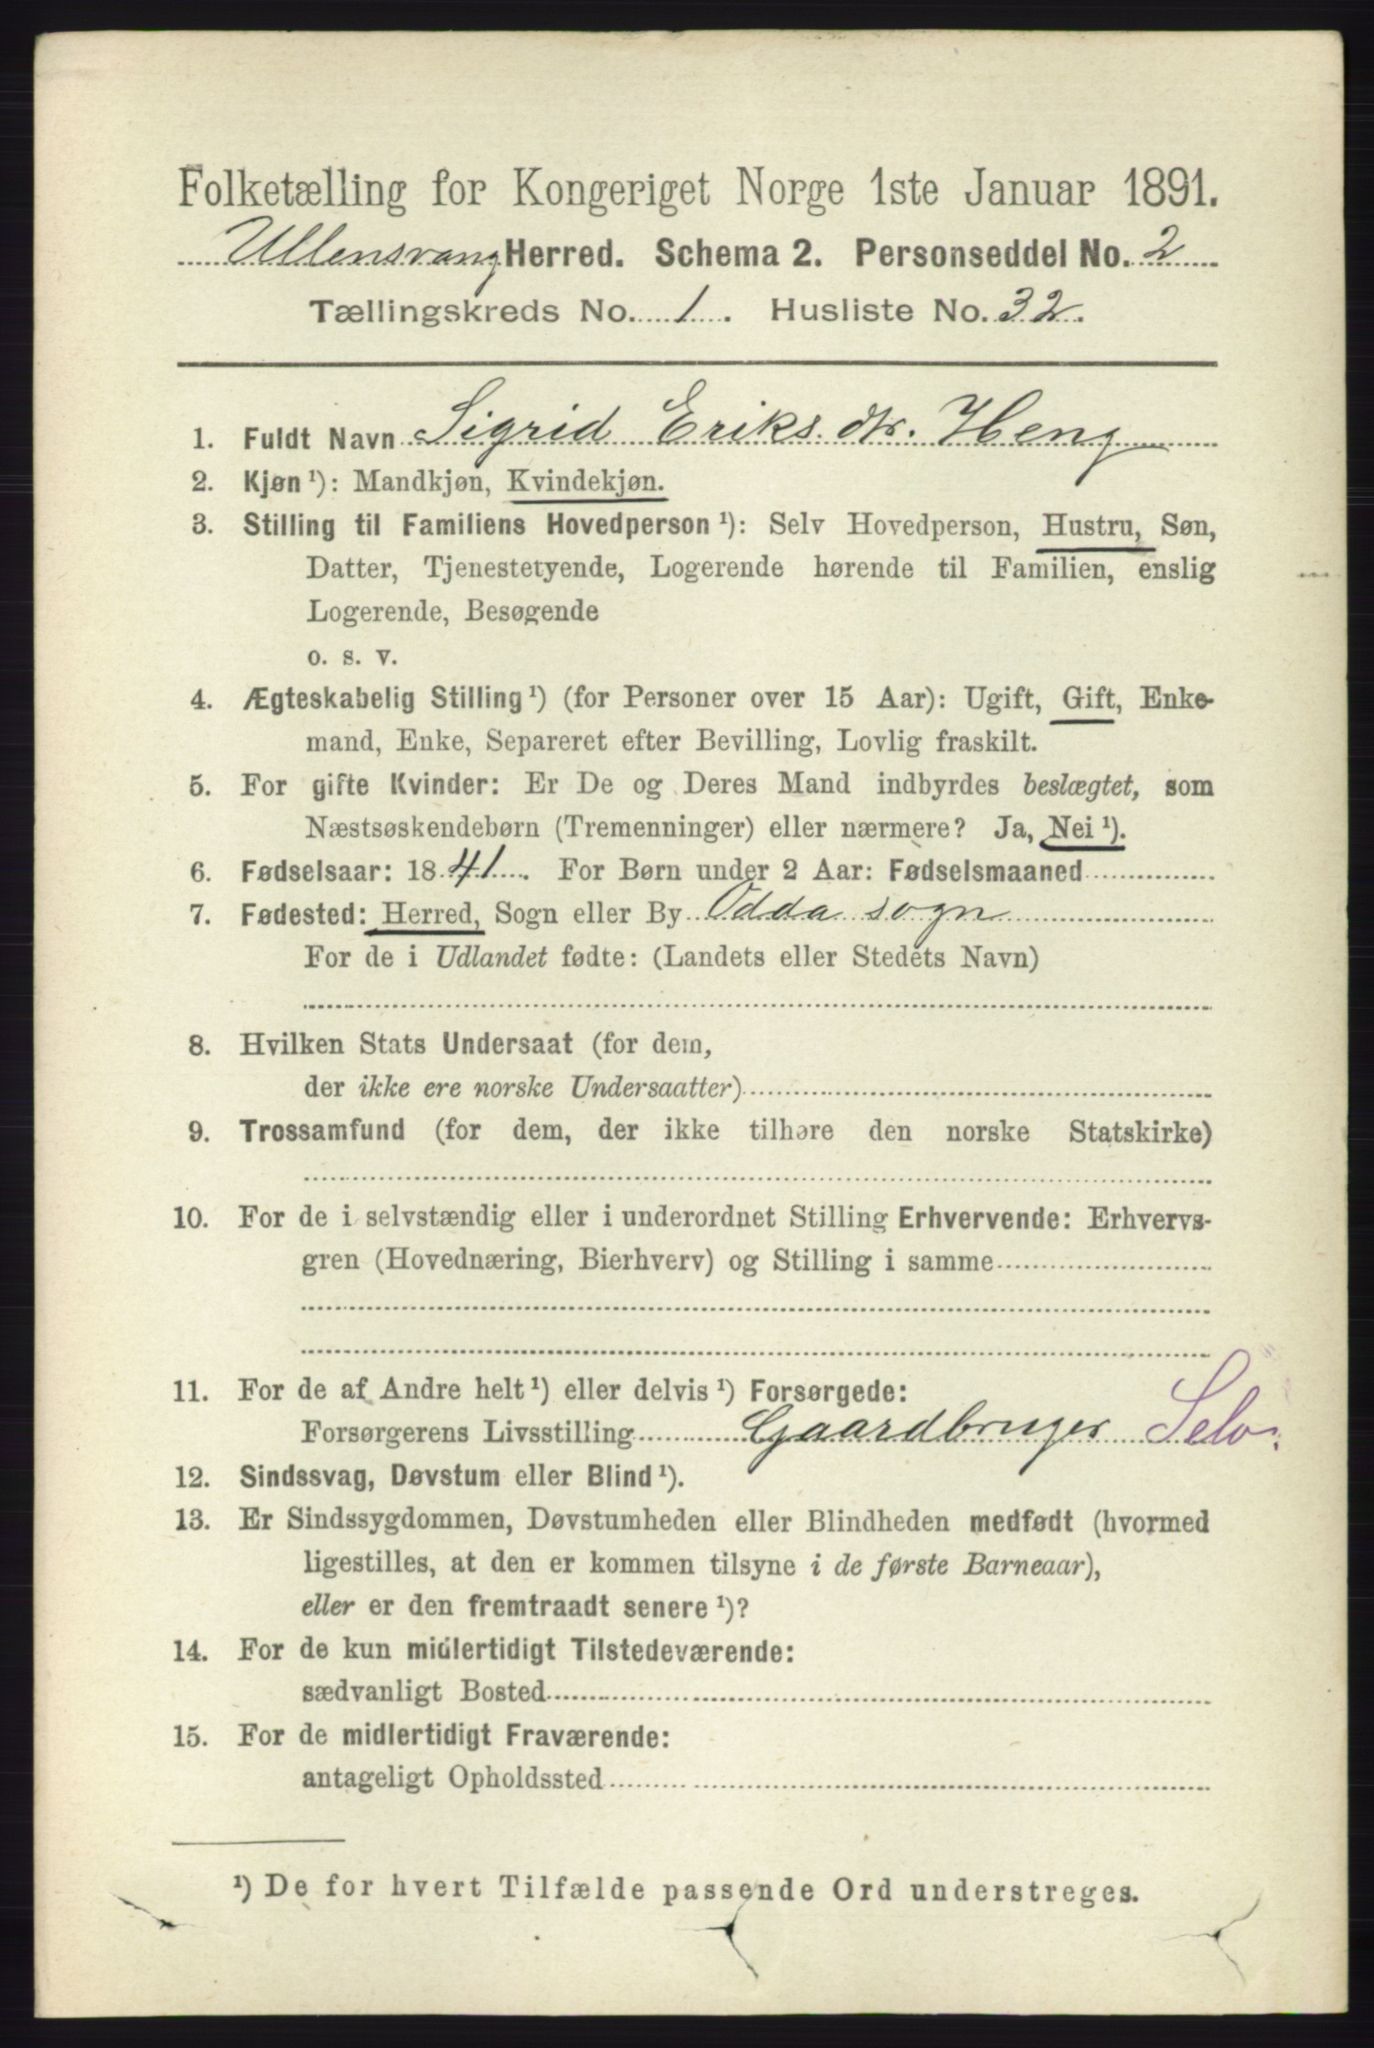 Folketælling for Kongeriget Norge 1ste Januar 1891.
Ullensvang Herred. Schema 2. Personseddel No. 2
Tællingskreds No. 1. Husliste No. 32.
1. Fuldt Navn Sigrid Eriks dtr. Heng
2. Kjøn¹): Mandkjøn, Kvindekjøn.
3. Stilling til Familiens Hovedperson¹): Selv Hovedperson, Hustru, Søn,
Datter, Tjenestetyende, Logerende hørende til Familien, enslig
Logerende, Besøgende
o. s. v.
4. Ægteskabelig Stilling¹) (for Personer over 15 Aar): Ugift, Gift, Enke-
mand, Enke, Separeret efter Bevilling, Lovlig fraskilt.
5. For gifte Kvinder: Er De og Deres Mand indbyrdes beslægtet, som
Næstsøskendebørn (Tremenninger) eller nærmere? Ja, Nei¹).
6. Fødselsaar: 1841. For Børn under 2 Aar: Fødselsmaaned
7. Fødested: Herred, Sogn eller By Odda sogn
For de i Udlandet fødte: (Landets eller Stedets Navn)
8. Hvilken Stats Undersaat (for dem,
der ikke ere norske Undersaatter)
9. Trossamfund (for dem, der ikke tilhøre den norske Statskirke)
10. For de i selvstændig eller i underordnet Stilling Erhvervende: Erhvervs-
gren (Hovednæring, Bierhverv) og Stilling i samme
11. For de af Andre helt¹) eller delvis¹) Forsørgede:
Forsørgerens Livsstilling Gaardbruger Selv.
12. Sindssvag, Døvstum eller Blind¹).
13. Er Sindssygdommen, Døvstumheden eller Blindheden medfødt (hvormed
ligestilles, at den er kommen tilsyne i de første Barneaar),
eller er den fremtraadt senere¹)?
14. For de kun midlertidigt Tilstedeværende:
sædvanligt Bosted
15. For de midlertidigt Fraværende:
antageligt Opholdssted
¹) De for hvert Tilfælde passende Ord understreges.